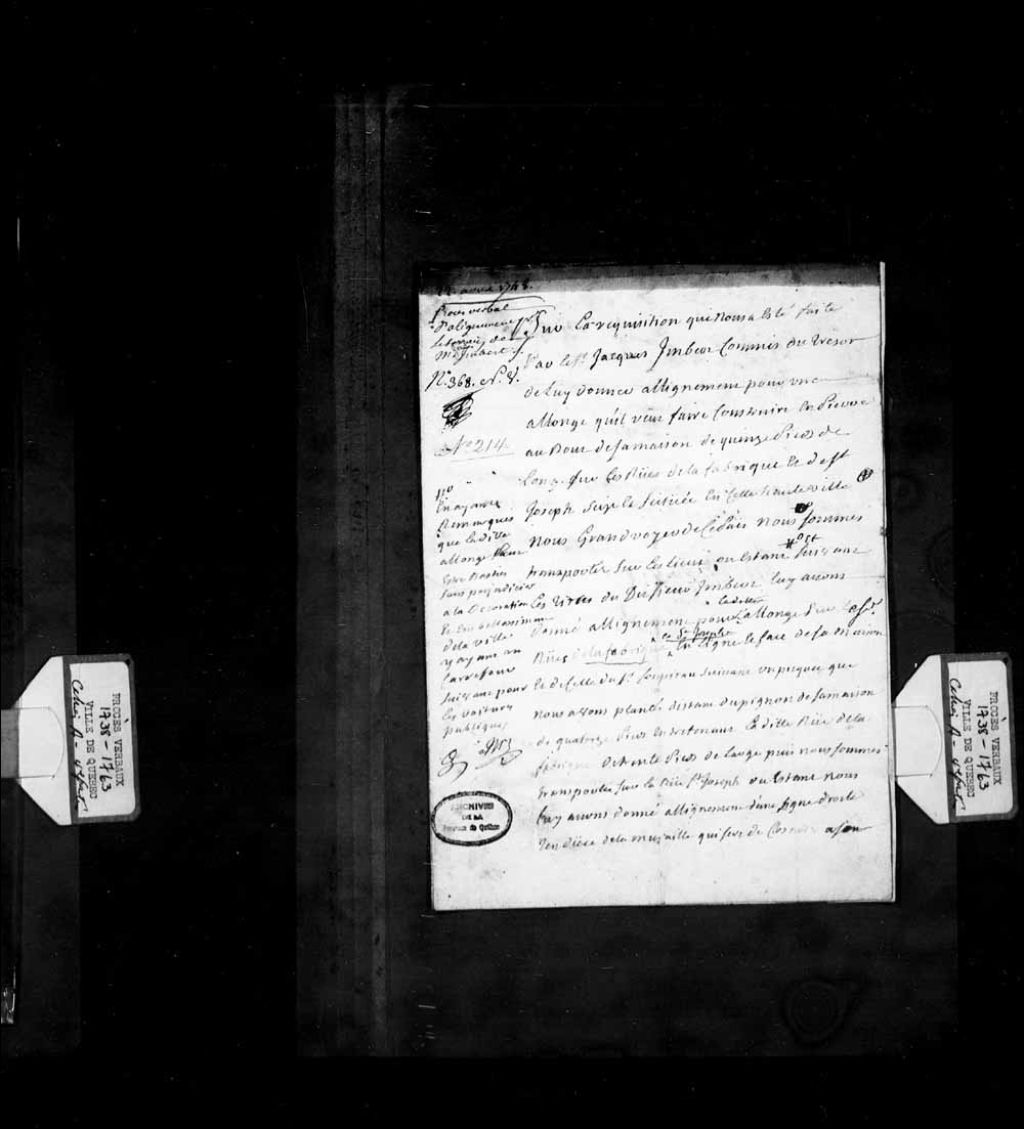 avril 1748.
Procès verbal
D'alignement pr
le terrain de
Mr Imbert
No. 368. N. V.
No 214
Sur La requisition qui nous a Esté faite
Par le Sr. Jacques Imbert Commis du Tresor
de Luy donner allignement pour une
allonge qu'il veut faire Construire En Pierre
au Bout de sa maison de quinze Pieds de
Long, sur Les Rües de la fabrique Et de St
Joseph Sise et Scituée En Cette haute ville
nous Grand voyer de Ce Païs nous sommes
transportés sur les lieux, ou Estant
Les titres du Dit Sieur Imbert luy avons
donné allignement pour la ditte allonge sur
Rües de la fabrique Et St Joseph En Ligne la face de sa maison
Et de Celle du Sr. suivant un picquet que
nous avons planté distant du pignon de sa maison
de quatorze Pieds La ditte Rüe de la
fabrique de trente Pieds de Large puis nous sommes
transportés sur la Rüe St Joseph ou Estant nous
Luy avons donné allignement d'une ligne droite
de la muraille qui sert de a son
no
En ayant
Remarqués
que la dite
allonge
Estre Bastie
sans prejudicier
a la Decoration
Et Embellissement
de la ville
y ayant un
Carrefour
suisant pour
les voitures
publiques
ARCHIVES
DE LA
Province de Québec
PROCES VERBAUX
1738 - 1763
VILLE DE QUEBEC
PROCES VERBAUX
1738 - 1763
VILLE DE QUEBEC